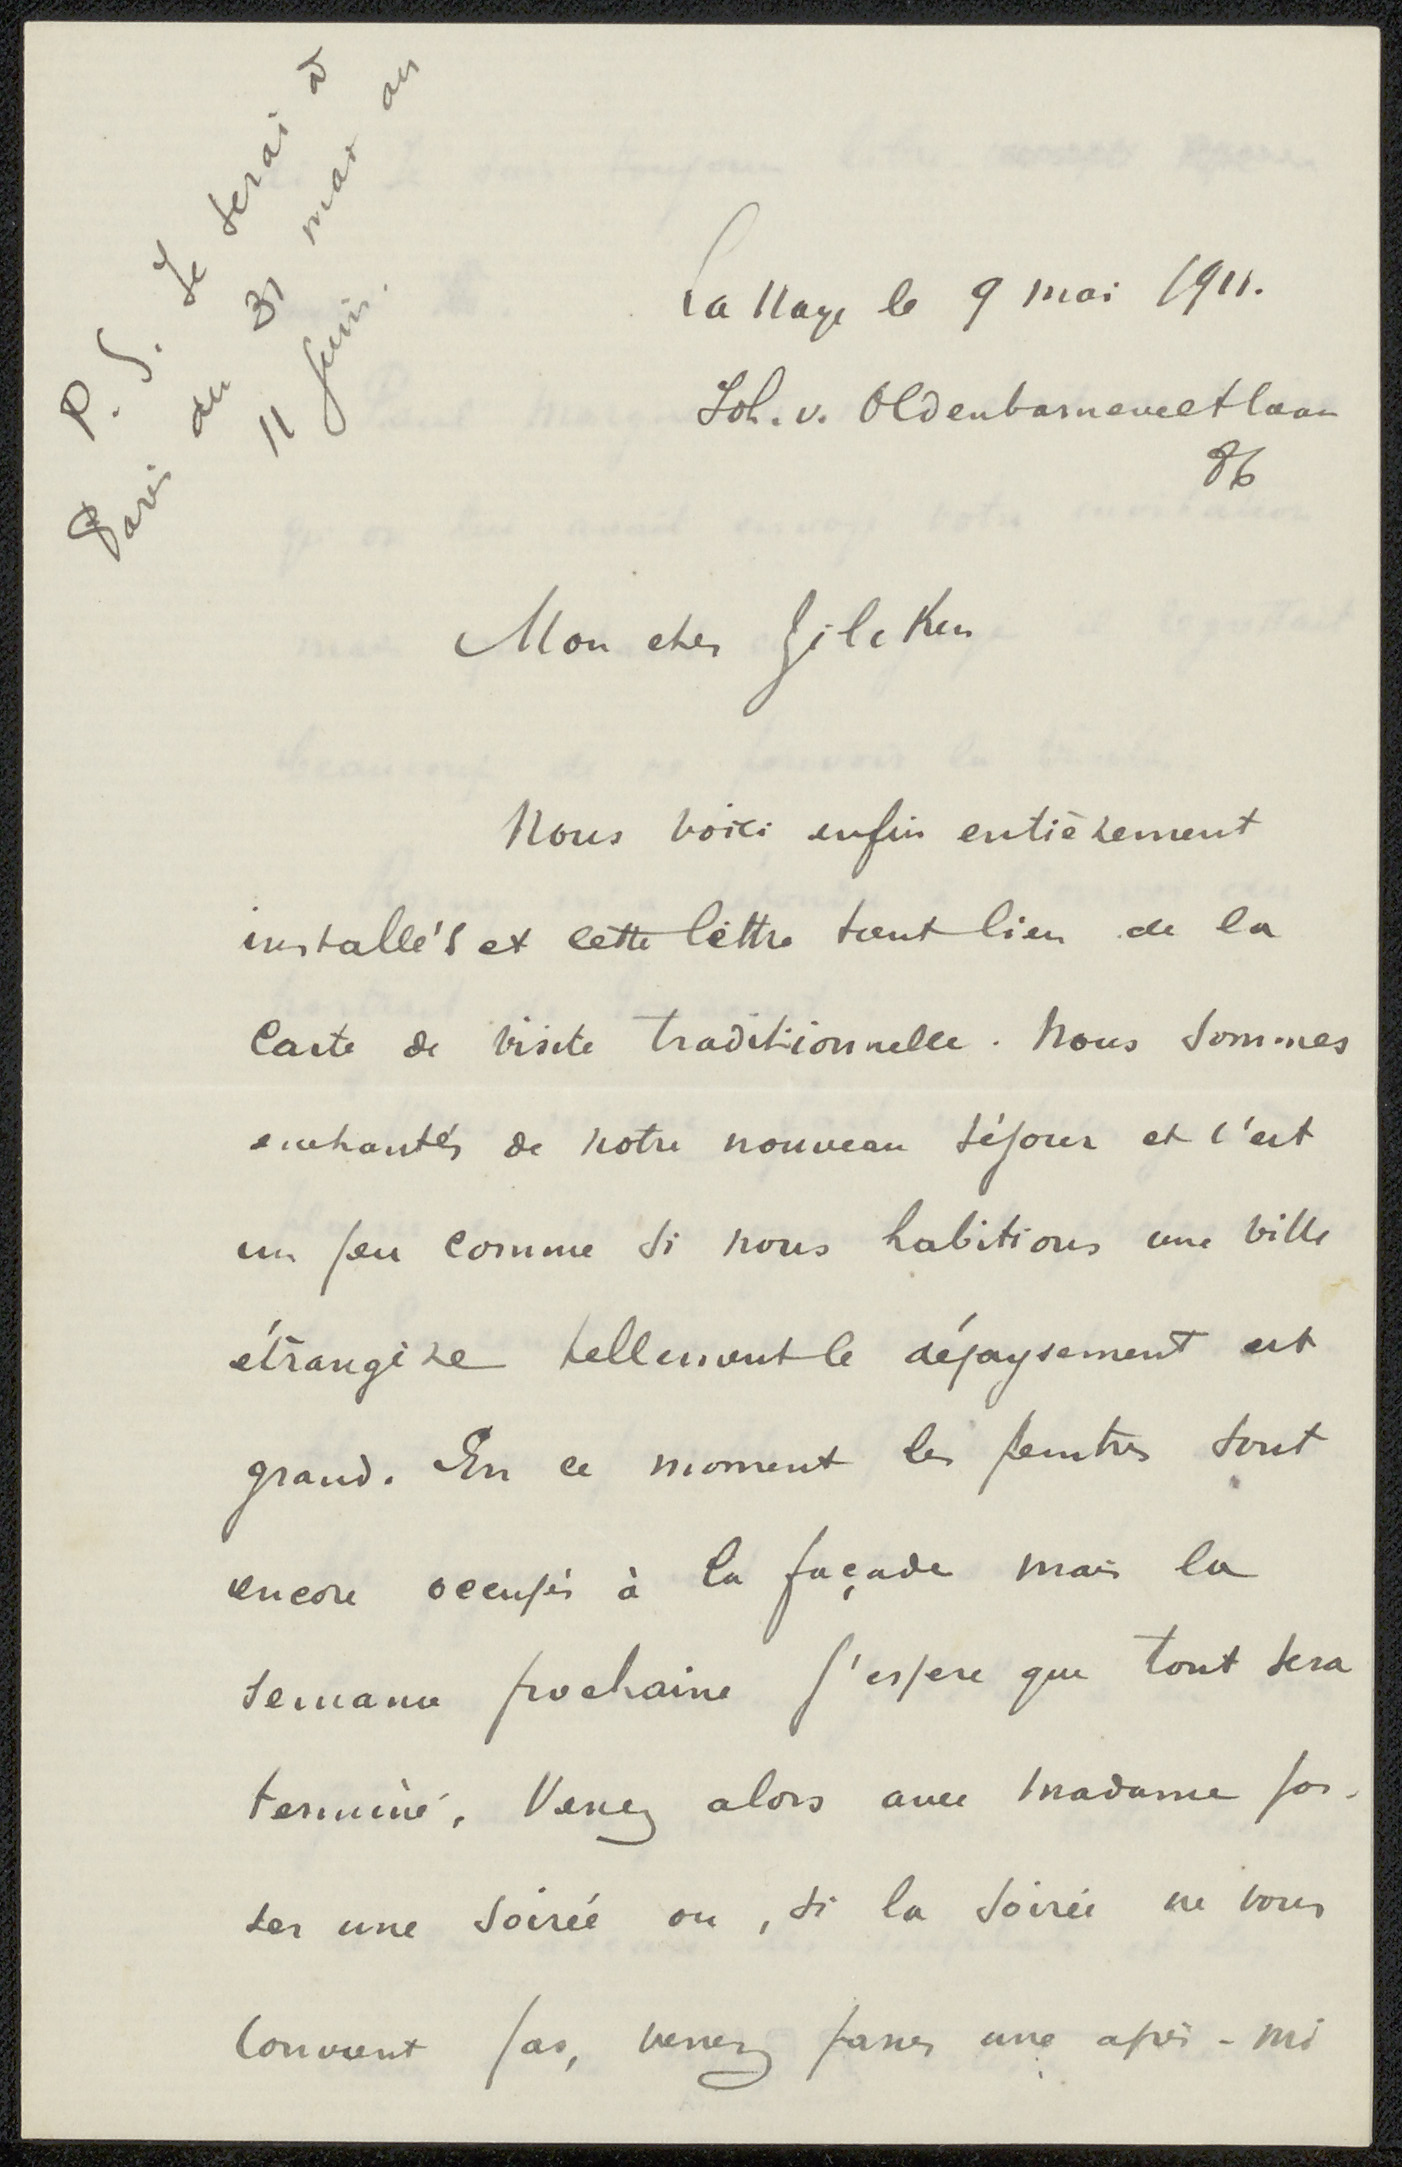 P.S. Je serai à
Paris du 31 mai au
11 juin.
La Haye le 9 mai 1911.
Joh. v. Oldenbarneveltlaan
86
Mon cher Zilcken
Nous voici enfin entièrement
installés et cette lettre tient lieu de la
carte de visite traditionnelle. Nous sommes
enchantés de notre nouveau séjour et c'est
un peu comme si nous habitions une ville
étrangère tellement le dépaysement est
grand. En ce moment les peintres sont
encore occupés à la façade mais la
semaine prochaine j'espere que tout sera
terminé. Venez alors avec Madame pas-
ser une soirée ou, si la soirée ne vous
convient pas, venez passer une après-mi